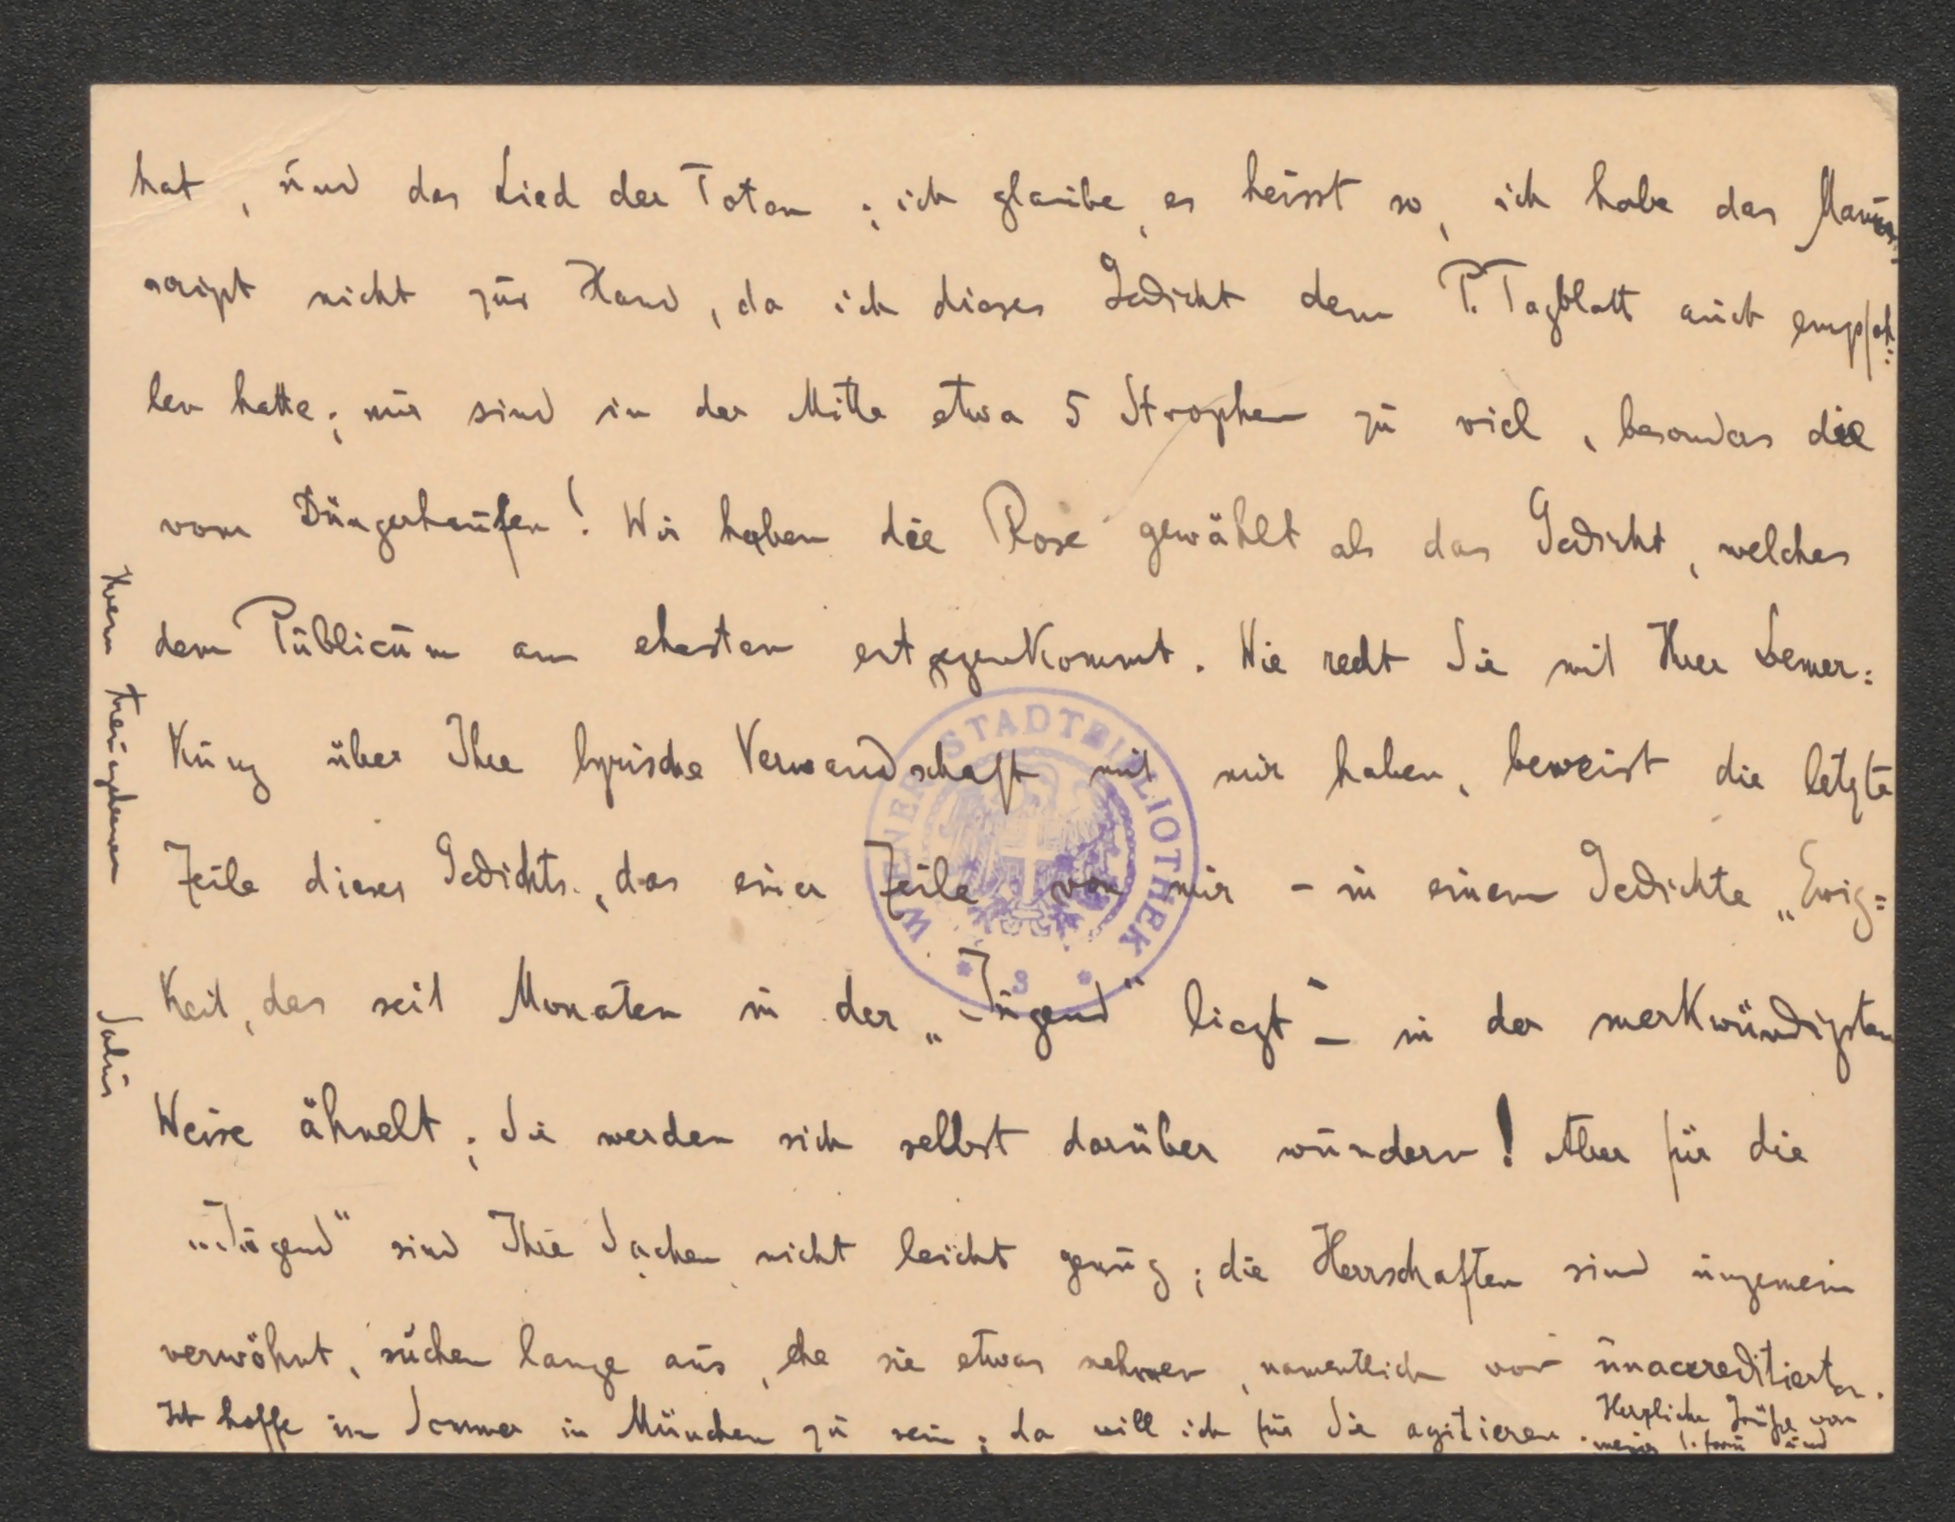 hat, und das Lied der Toten; ich glaube, es heisst so, ich habe das Manus-
script nicht zur Hand, da ich dieses Gedicht dem P. Tagblatt auch empfoh:
len hatte; mir sind in der Mitte etwa 5 Strophen zu viel, besonders die
vom Düngerhaufen! Wir haben die Rose gewählt als das Gedicht, welches
dem Publicum am ehesten entgegenkommt. Wie recht Sie mit Ihrer Bemer:
kung über Ihre lyrische Verwandschaft mit mir haben, beweist die letzte
Zeile dieses Gedichts, das einer Zeile von mir – in einem Gedichte „Ewig=
keit, das seit Monaten in der „Jugend“ liegt – in der merkwürdigsten
Weise ähnelt; Sie werden sich selbst darüber wundern! Aber für die
„Jugend“ sind Ihre Sachen nicht leicht genug; die Herrschaften sind ungemein
verwöhnt, suchen lange aus, ehe sie etwas nehmen, namentlich von unaccreditierten.
Ich hoffe im Sommer in München zu sein; da will ich für Sie agitieren. Herzliche Grüße von
meiner l. Frau und
Ihrem treuergebenen Salus
WIENER STADTBIBLIOTHEK